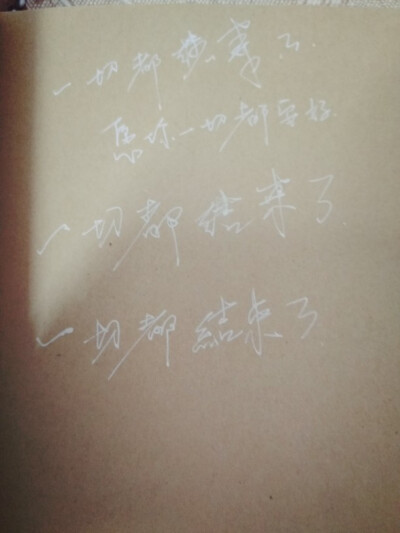 一切都结束了.
愿你一切都安好.
一切都结束了.
一切都結束了.